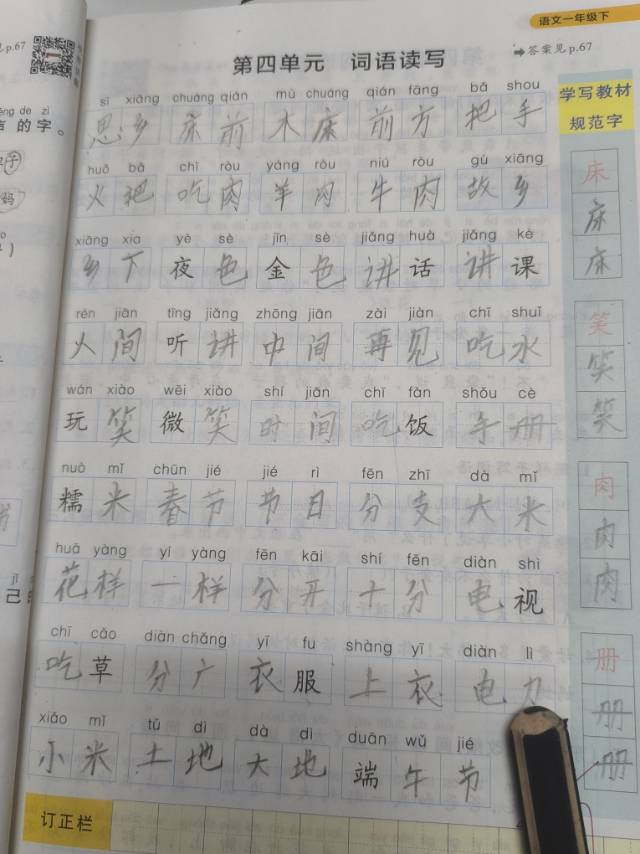 语文一年级下
第四单元 词语读写
➡答案见p.67
见p.67
sī xiāng chuáng qián mù chuáng qián fāng bǎ shou
思乡 床前 木床 前方 把手
huǒ bǎ chī ròu yáng ròu niú ròu gù xiāng
火把 吃肉 羊肉 牛肉 故乡
xiāng xia yè sè jīn sè jiǎng huà jiǎng kè
乡下 夜色 金色 讲话 讲课
rén jiān tīng jiǎng zhōng jiān zài jiàn chī shuǐ
人间 听讲 中间 再见 吃水
wán xiào wēi xiào shí jiān chī fàn shǒu cè
玩笑 微笑 时间 吃饭 手册
nuò mǐ chūn jié jié rì fēn zhī dà mǐ
糯米 春节 节日 分支 大米
huā yàng yí yàng fēn kāi shí fēn diàn shì
花样 一样 分开 十分 电视
chī cǎo diàn chǎng yī fu shàng yī diàn lì
吃草 分广 衣服 上衣 电力
xiǎo mǐ tǔ dì dà dì duān wǔ jié
小米 土地 大地 端午节
订正栏
学写教材
规范字
床
床
床
笑
笑
笑
肉
肉
肉
册
册
册